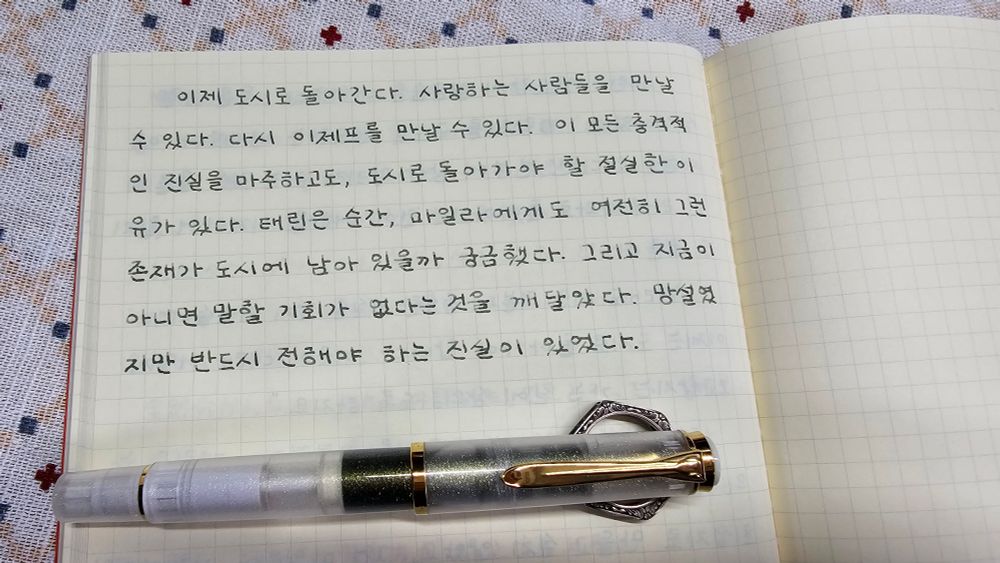 이제 도시로 돌아간다. 사랑하는 사람들을 만날
수 있다. 다시 이제프를 만날 수 있다. 이 모든 충격적
인 진실을 마주하고도, 도시로 돌아가야 할 절실한 이
유가 있다. 태린은 순간, 마일라에게도 여전히 그런
존재가 도시에 남아 있을까 궁금했다. 그리고 지금이
아니면 말할 기회가 없다는 것을 깨달았다. 망설였
지만 반드시 전해야 하는 진실이 있었다.